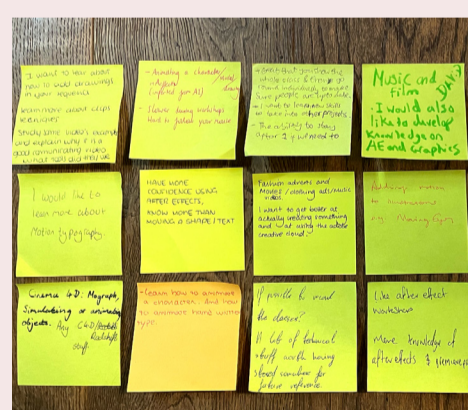 I want to hear about
how to use drawings
in your sequences
learn more about clips
techniques
Study some video's examples
and explain why it is a
good communicating video
what tool did they use
- Animating a character/
Infinite / model
(inspired from AI) drawing
- Slower learning workshops
Want to publish your movie
whole class & then go
round individually to make
sure people are up to date
- I want to learn new skills
to take into other projects
- The ability to stay
after if we need to
Music and
film
- I would also
like to develop
knowledge on
AE and Graphics
I would like to
learn more about
Motion typography.
HAVE MORE
CONFIDENCE USING
AFTER EFFECTS.
KNOW MORE THAN
MOVING A SHAPE/TEXT
Fashion adverts and
Movies / clothing ads/music
videos
I want to get better at
actually creating something
and not using the adobe
creative cloud.
to
eg. Moving
Cinema 4D. Mograph,
Simulating or animating
objects. Any C4D/
Redshift
stuff.
- Learn how to animate
a character. And how
to animate hand written
type.
If possible to record
the classes?
A lot of technical
stuff worth having
stored somewhere for
future reference.
Like after effect
workshops
More knowledge of
after effects & premiere